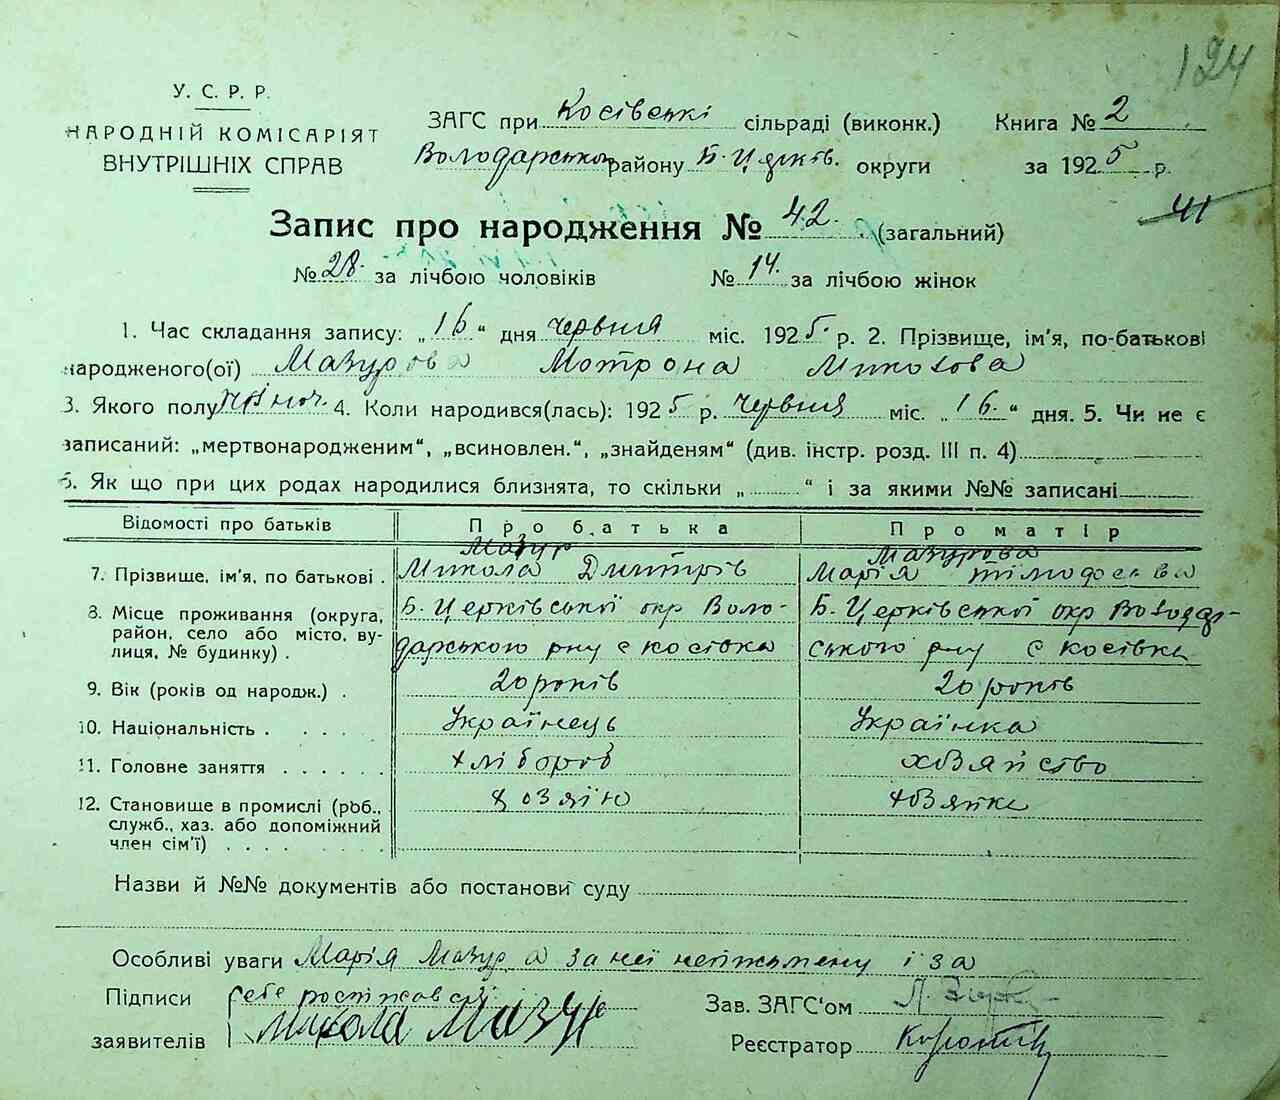 124
У. С. Р. Р.
НАРОДНІЙ КОМІСАРІЯТ
ВНУТРІШНІХ СПРАВ
ЗАГС при Косівські сільраді (виконк.) Книга № 2
Володарського району Б. Церків. округи за 1925 р.
41
Запис про народження № 42. (загальний)
№ 28. за лічбою чоловіків № 14. за лічбою жінок
1. Час складання запису: „16“ дня червня міс. 1925. р. 2. Прізвище, ім'я, по-батькові
народженого(ої) Мазурова Мотрона Миколова
3. Якого полу жіноч. 4. Коли народився(лась): 1925 р. червня міс. „16.“ дня. 5. Чи не є
записаний: „мертвонародженим“, „всиновлен.“, „знайденям“ (див. інстр. розд. III п. 4)
6. Як що при цих родах народилися близнята, то скільки „ “ і за якими №№ записані
Відомості про батьків Про батька Про матір
Мазур Мазурова
7. Прізвище, ім'я, по батькові . Микола Дмитрів Марія Тімофеєва
8. Місце проживання (округа, Б. Церківської окр Воло- Б. Церківської окр Володар-
район, село або місто, ву-
лиця, № будинку) . дарського рну с косівка ського рну с косівка
9. Вік (років од народж.) . 20 років 20 років
10. Національність . . . . . Українець Українка
11. Головне заняття . . . . . . хлібороб хозяйство
12. Становище в промислі (роб., хозяїн хозяйка
служб., хаз. або допоміжний
член сім'ї) . . . . . . . .
Назви й №№ документів або постанови суду
Особливі уваги Марія Мазур за неї і за
Підписи себе
заявителів Микола Мазур
Зав. ЗАГС'ом
Реєстратор